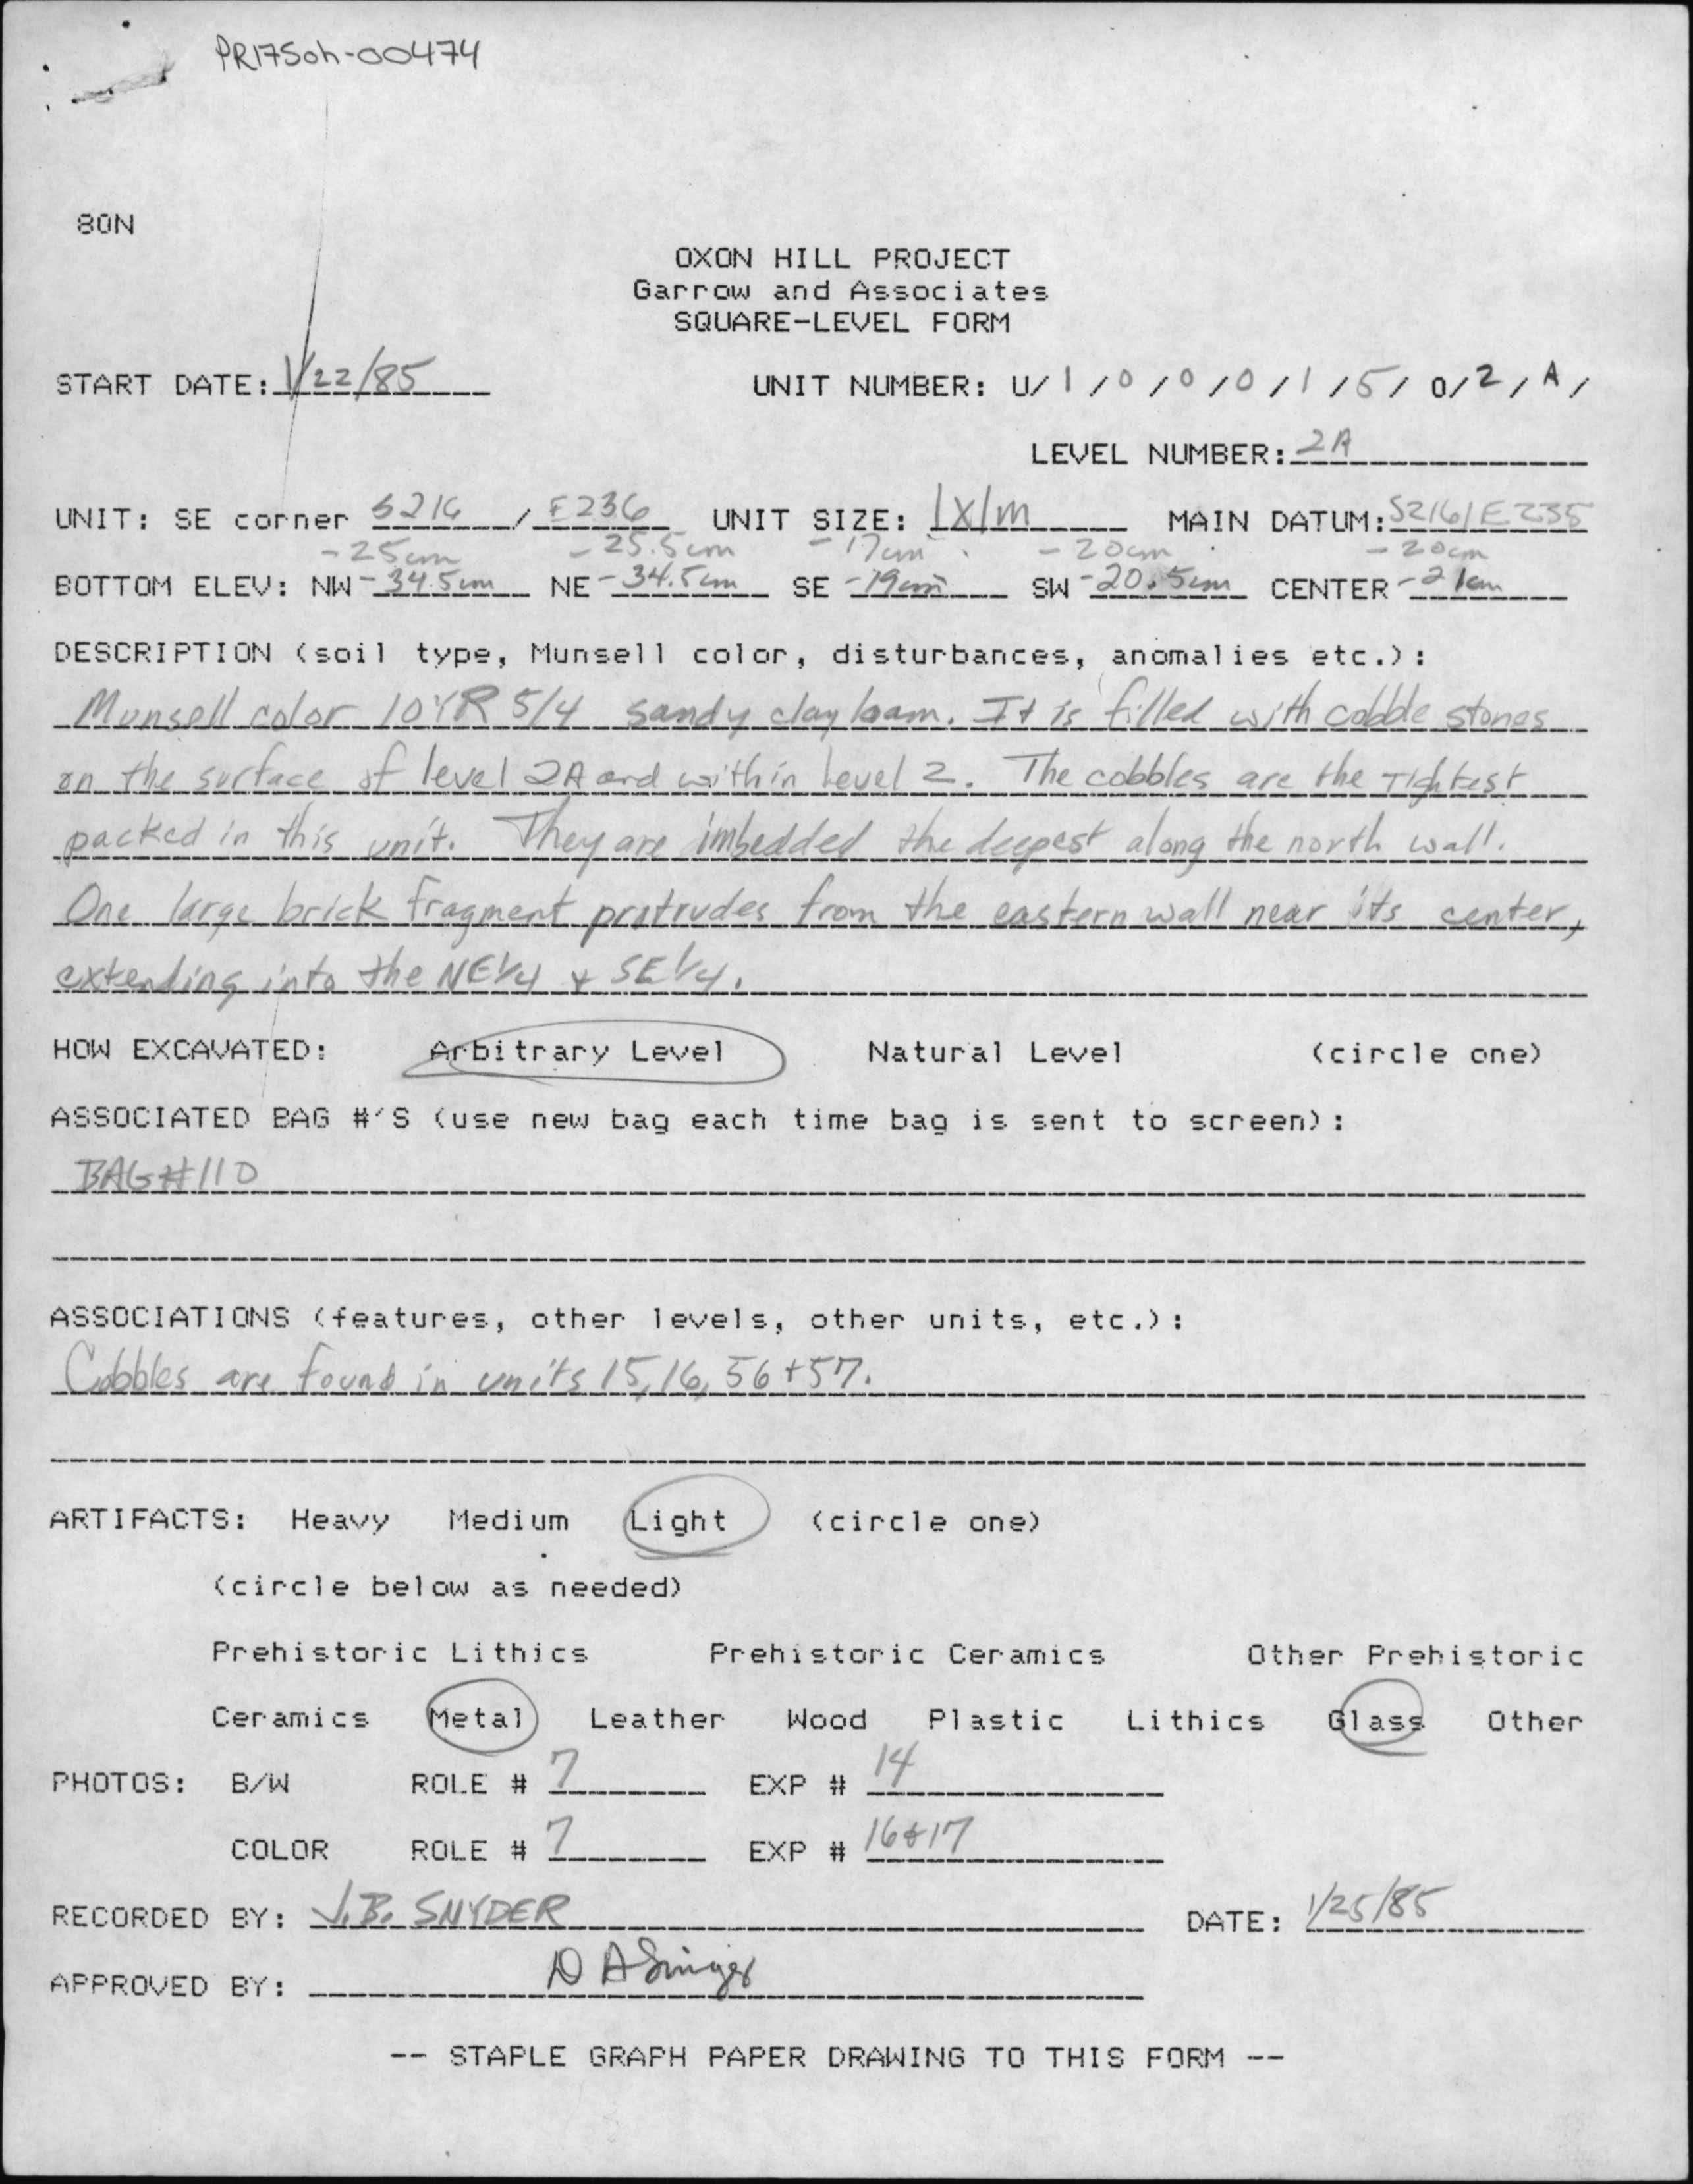 PR175oh-00474
80N
OXON HILL PROJECT
Garrow and Associates
SQUARE-LEVEL FORM
START DATE: 1/22/85 UNIT NUMBER: U/ 1 / 0 / 0 / 0 / 1 / 5 / 0/ 2 / A /
LEVEL NUMBER: 2A
UNIT: SE corner S216 / E236 UNIT SIZE: 1x1m MAIN DATUM: S216/E235
-25cm -25.5cm -17cm -20cm -20cm
BOTTOM ELEV: NW -34.5cm NE -34.5cm SE -19cm SW -20.5cm CENTER -21cm
DESCRIPTION (soil type, Munsell color, disturbances, anomalies etc.):
Munsell color 10YR 5/4 sandy clay loam. It is filled with cobble stones
on the surface of level 2A and within level 2. The cobbles are the tightest
packed in this unit. They are imbedded the deepest along the north wall.
One large brick fragment protrudes from the eastern wall near its center,
extending into the NE1/4 + SE1/4.
HOW EXCAVATED: Arbitrary Level Natural Level (circle one)
ASSOCIATED BAG #'S (use new bag each time bag is sent to screen):
BAG#110
ASSOCIATIONS (features, other levels, other units, etc.):
Cobbles are found in units 15, 16, 56+57.
ARTIFACTS: Heavy Medium Light (circle one)
(circle below as needed)
Prehistoric Lithics Prehistoric Ceramics Other Prehistoric
Ceramics Metal Leather Wood Plastic Lithics Glass Other
PHOTOS: B/W ROLE # 7 EXP # 14
COLOR ROLE # 7 EXP # 16+17
RECORDED BY: J.B. SNYDER DATE: 1/25/85
APPROVED BY: D A Singer
-- STAPLE GRAPH PAPER DRAWING TO THIS FORM --